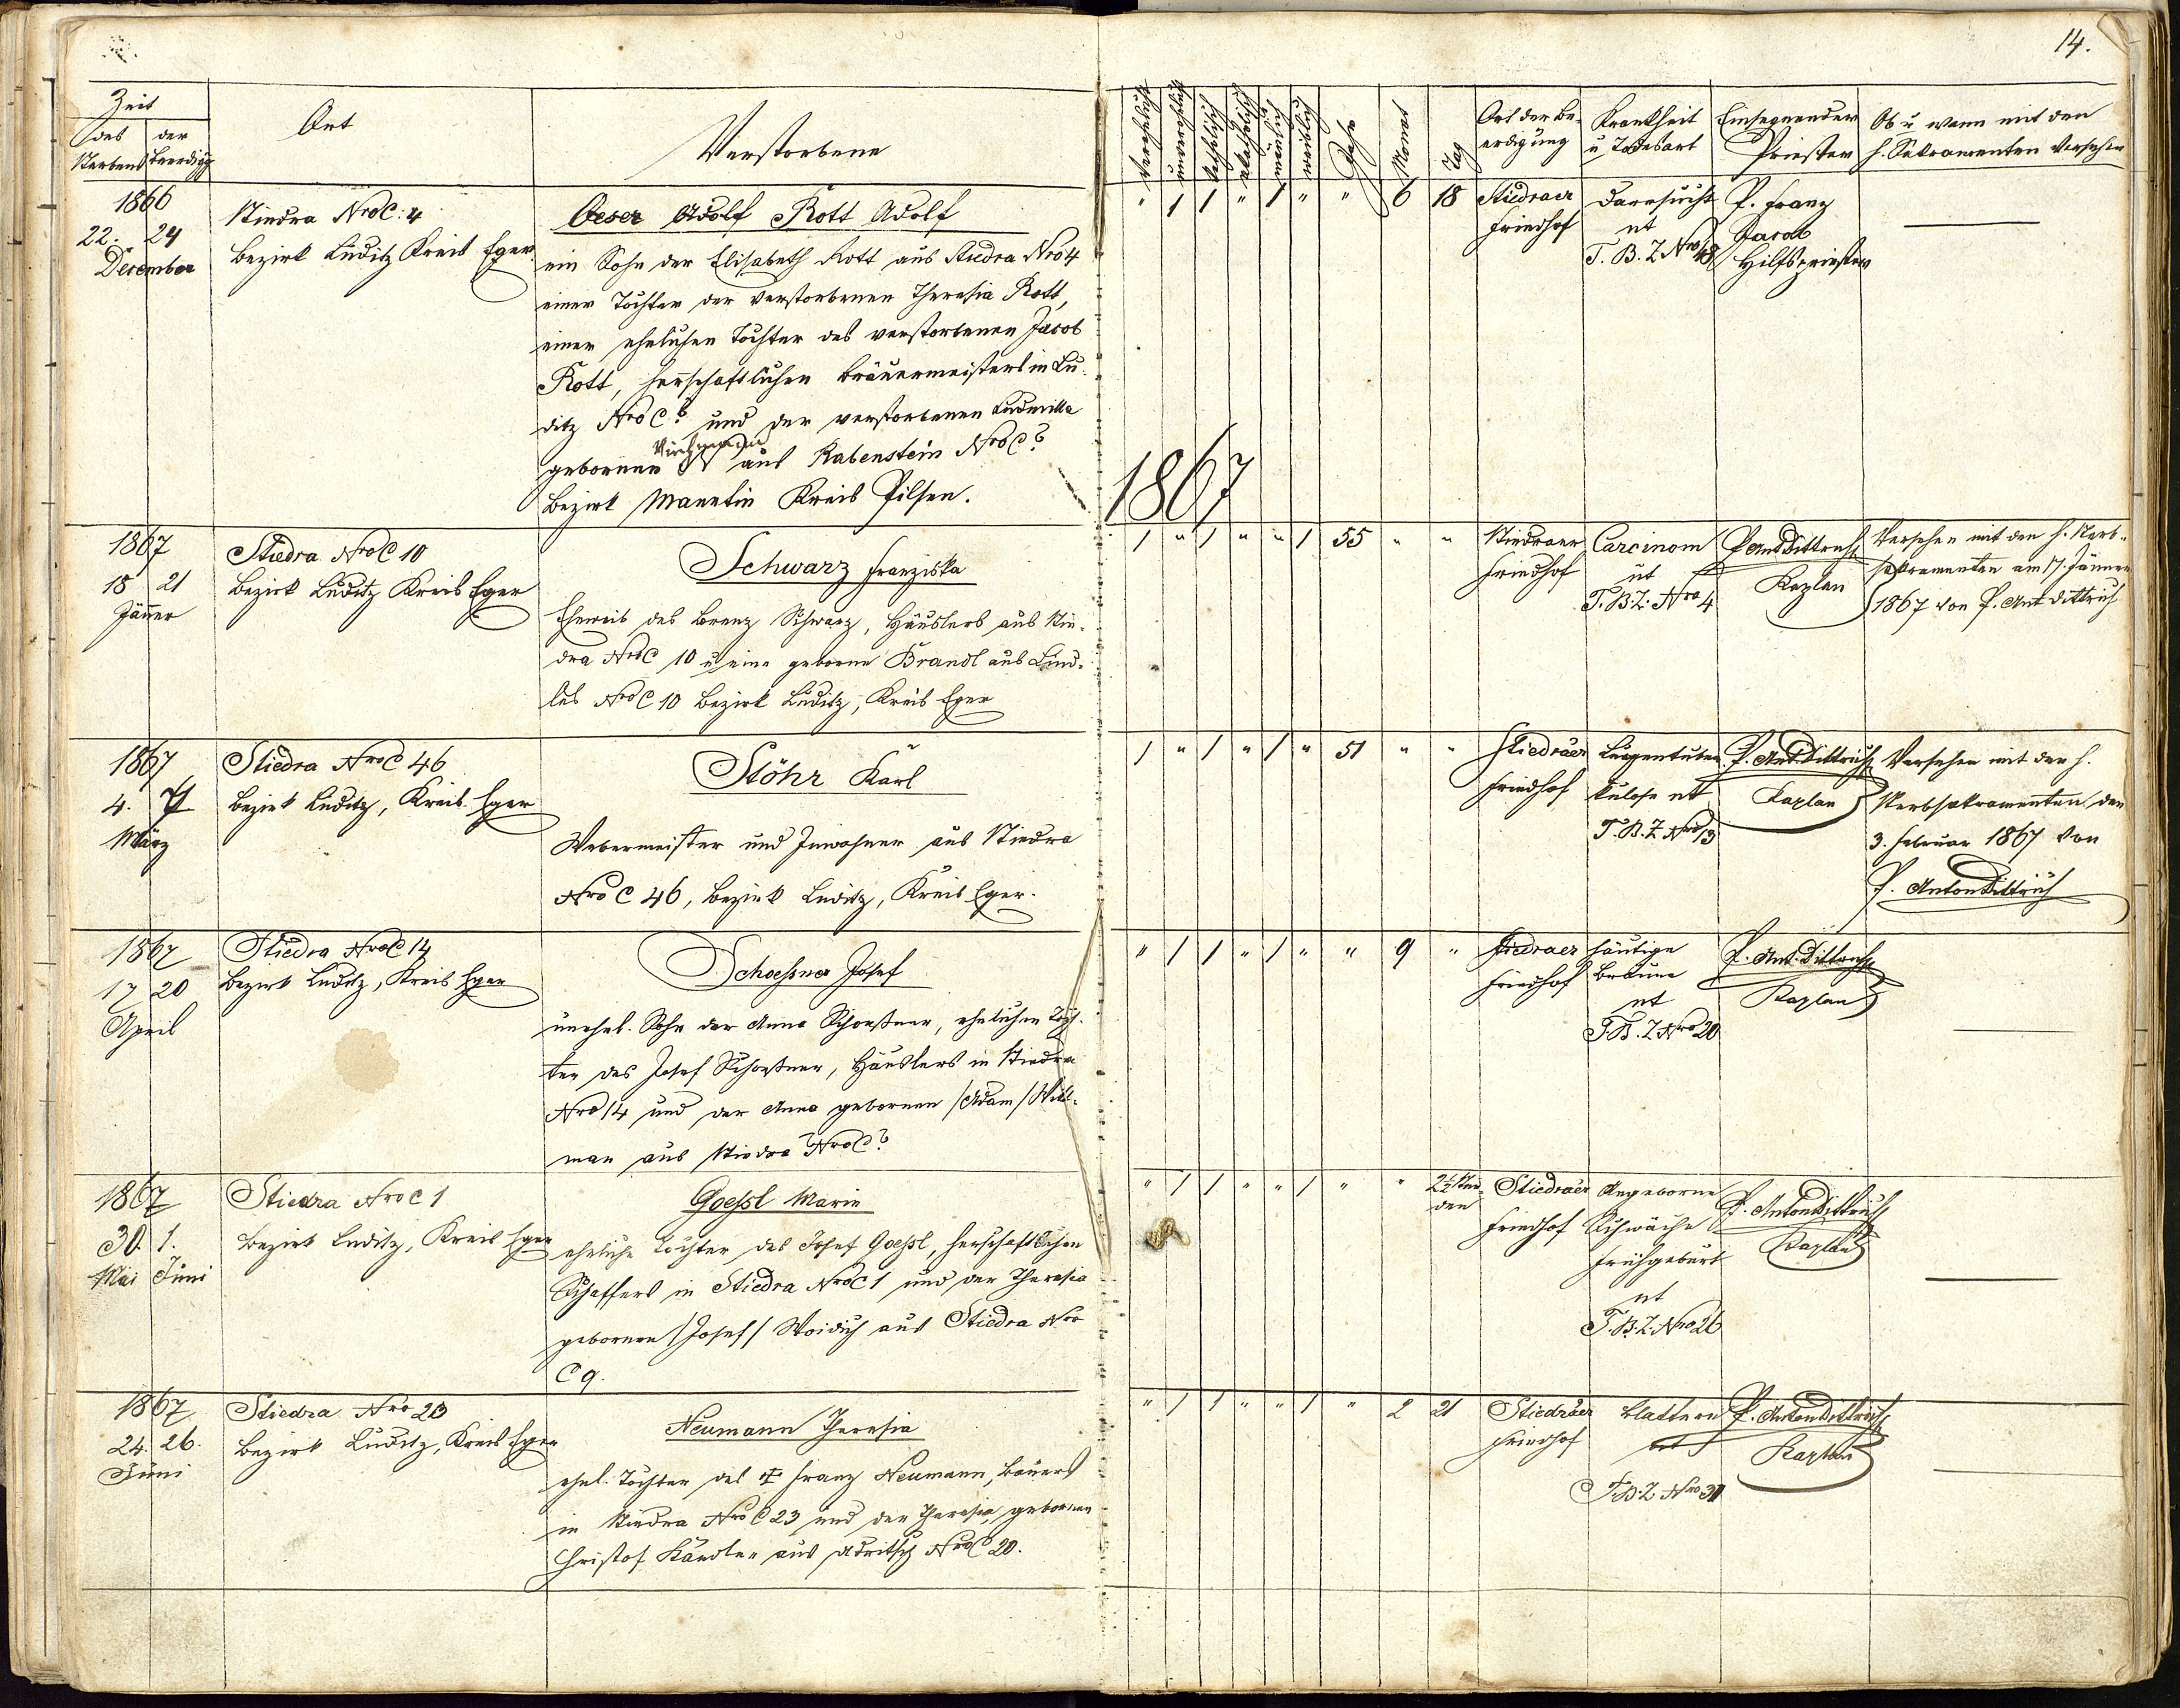 14.
Zeit
des Sterbens
der Beerdigg
Ort
Verstorbene
Verehelicht
unverehelicht
katholisch
akatholisch
mänlich
weiblich
Jahr
Monat
Tag
Ort der Be-
erdigung
Krankheit
u Todesart
Einsegnender
Priester
Ob u wann mit den
h. Sakramenten versehen
1866
22. 24
December
Stiedra NroC: 4
Bezirk Luditz Kreis Eger
Oeser Adolf Rott Adolf
ein Sohn der Elisabeth Rott aus Stiedra Nro 4
einer Tochter der verstorbenen Theresia Rott,
einer ehelichen Tochter des verstorbenen Jacob
Rott, herrschaftlichen Bräuermeisters in Lu-
ditz Nro C? und der verstorbenen Ludmilla
gebornen aus Rabenstein Nro C?
Bezirk Manetin Kreis Pilsen.
" 1 1 " 1 " " 6 18
Stiedraer
Friedhof
Darrsucht
ut
T. B. Z Nro 48
P. Franz
Jacob
Hilfspriester
1867
1867
18 21
Jäner
Stiedra NroC 10
Bezirk Luditz Kreis Eger
Schwarz Franziska
Eheweib des Lorenz Schwarz, Häuslers aus Stie-
dra NroC 10 u eine geborne Brandl aus Lind-
les NroC 10 Bezirk Luditz, Kreis Eger
1 " 1 " " 1 55 " "
Stiedraer
Friedhof
Carcinom
ut
T. B. Z: Nro 4
P Ant Dittrich
Kaplan
Versehen mit den h. Sterb-
sakramenten am 17. Jänner
1867 von P. Ant Dittrich
1867
4. 7
März
Stiedra NroC 46
Bezirk Luditz, Kreis Eger
Stöhr Karl
Webermeister und Inwohner aus Stiedra
Nro C 46, Bezirk Luditz, Kreis Eger.
1 " 1 " 1 " 51 " "
Stiedraer
Friedhof
Lungentuber
kulose ut
T. B. Z Nro 13
P. Ant Dittrich
Kaplan
Versehen mit den h.
Sterbsakramenten den
3. Februar 1867 von
P. Anton Dittrich
1867
17 20
April
Stiedra NroC 14
Bezirk Luditz, Kreis Eger
Schoeßner Josef
unehel. Sohn der Anna Schoeßner, ehelichen Toch-
ter des Josef Schoeßner, Häuslers in Stiedra
Nro 14 und der Anna gebornen /Adam/
man aus Stiedra NroC?
" 1 1 " 1 " " 9 "
Stiedraer
Friedhof
häutige
Bräune
ut
T. B. Z Nro 20
P. Ant. Dittrich
Kaplan
1867
30. 1.
Mai Juni
Stiedra Nro C 1
Bezirk Luditz, Kreis Eger
Goeßl Marie
eheliche Tochter des Josef Goeßl, herschaftlichen
Schaffers in Stiedra NroC 1 und der Theresia
gebornen /Josef/ Woidich aus Stiedra Nro
C 9.
" 1 1 " " 1 " " 2½ Stun-
den
Stiedraer
Friedhof
Angeborne
Schwäche
Frühgeburt
ut
T. B. Z. Nro 26
P. Anton Dittrich
Kaplan
1867
24. 26.
Juni
Stiedra Nro 23
Bezirk Luditz, Kreis Eger
Neumann Theresia
ehel. Tochter des Franz Neumann, Bauers
in Stiedra Nro C 23 und der Theresia, gebornen
Christof Kandler aus NroC 20.
" 1 1 " " 1 " 2 21
Stiedraer
Friedhof
Blattern
ut
T. B. Z Nro 31
P. Anton Dittrich
Kaplan